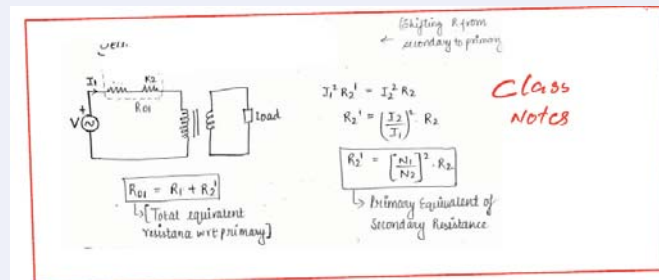 (Shifting R from
← secondary to primary)
I₁
R₂
R₀₁
+
V
Load
R₀₁ = R₁ + R₂'
↳ [Total equivalent
resistana wrt primary]
I₁² R₂' = I₂² R₂
R₂' = (I₂/I₁)² . R₂
R₂' = [N₁/N₂]² . R₂
↳ Primary Equivalent of
Secondary Resistance
Class
Notes